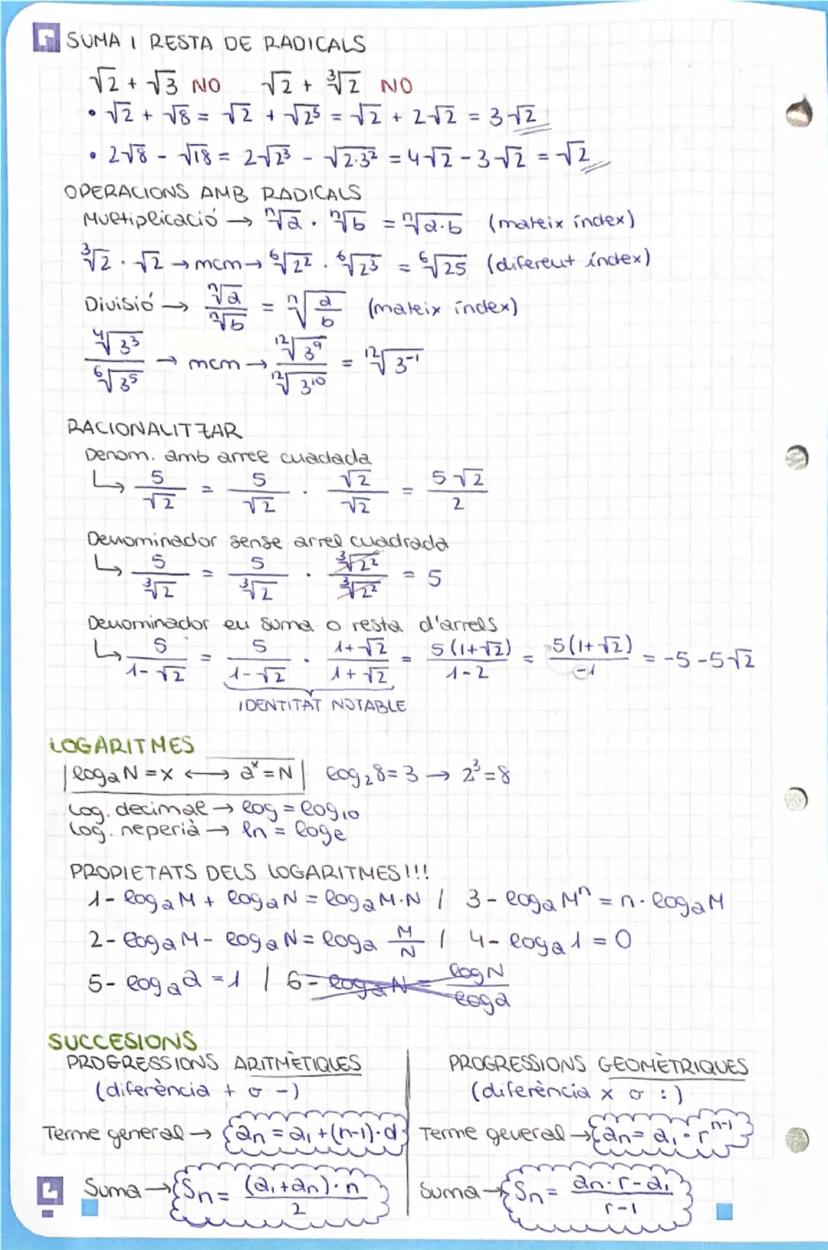 SUMA I RESTA DE RADICALS
√2 + √3 NO √2 + ∛2 NO
• √2 + √8 = √2 + √2³ = √2 + 2√2 = 3√2
• 2√8 - √18 = 2√2³ - √2·3² = 4√2 - 3√2 = √2
OPERACIONS AMB RADICALS
Multiplicació → ⁿ√a · ⁿ√b = ⁿ√a·b (mateix índex)
³√2 · √2 → mcm → ⁶√2² · ⁶√2³ = ⁶√25 (diferent índex)
Divisió → ⁿ√a / ⁿ√b = ⁿ√(a/b) (mateix índex)
⁴√3³ / ⁶√3⁵ → mcm → ¹²√3⁹ / ¹²√3¹⁰ = ¹²√3⁻¹
RACIONALITZAR
Denom. amb arrel cuadada
↳ 5/√2 = 5/√2 · √2/√2 = 5√2/2
Denominador sense arrel cuadrada
↳ 5/³√2 = 5/³√2 · ³√2²/³√2² = 5
Denominador en suma o resta d'arrels
↳ 5/(1-√2) = 5/(1-√2) · (1+√2)/(1+√2) = 5(1+√2)/(1-2) = 5(1+√2)/-1 = -5-5√2
IDENTITAT NOTABLE
LOGARITMES
|logₐN = x ⟷ aˣ = N| log₂8 = 3 → 2³ = 8
Log. decimal → log = log₁₀
Log. neperià → ln = loge
PROPIETATS DELS LOGARITMES!!!
1- logₐM + logₐN = logₐM·N / 3- logₐMⁿ = n·logₐM
2- logₐM - logₐN = logₐ M/N / 4- logₐ1 = 0
5- logₐa = 1 / 6- logₐN = logN/loga
SUCCESIONS
PROGRESSIONS ARITMÈTIQUES
(diferència + o -)
Terme general → aₙ = a₁ + (n-1)·d
Suma → Sₙ = (a₁+aₙ)·n / 2
PROGRESSIONS GEOMÈTRIQUES
(diferència x o :)
Terme general → aₙ = a₁·rⁿ⁻¹
Suma → Sₙ = (aₙ·r - a₁) / (r-1)